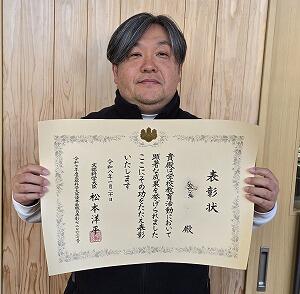 表彰状
殿
貴殿は学校教育活動において
顕著な成果を挙げられました
ここにその功をたたえ表彰
いたします
令和八年一月二十日
文部科学大臣 松本洋平